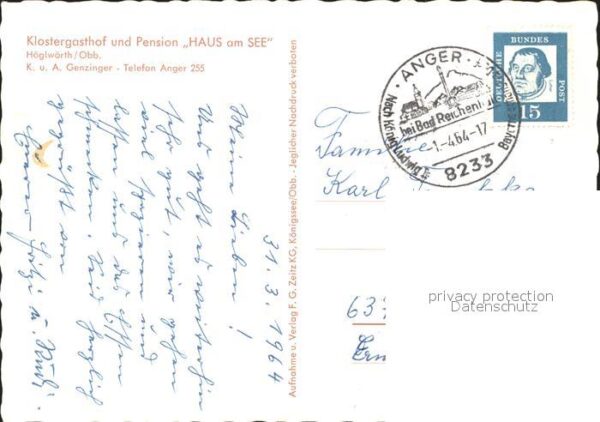 Klostergasthof und Pension „HAUS am SEE"
Höglwörth/Obb.
K. u. A. Genzinger - Telefon Anger 255
Aufnahme u. Verlag F. G. Zeitz KG, Königssee/Obb. - Jeglicher Nachdruck verboten
31.3.1964
Meine Lieben!
Uns geht es weiterhin
sehr gut, wir gehen
viel spazieren und
lassen uns das Essen
schmecken. Seid herzlich
gegrüßt von
DEUTSCHE
BUNDES
POST
15
ANGER
bei Bad Reichenhall
1.-4.64-17
8233
Familie
Karl
63
privacy protection
Datenschutz